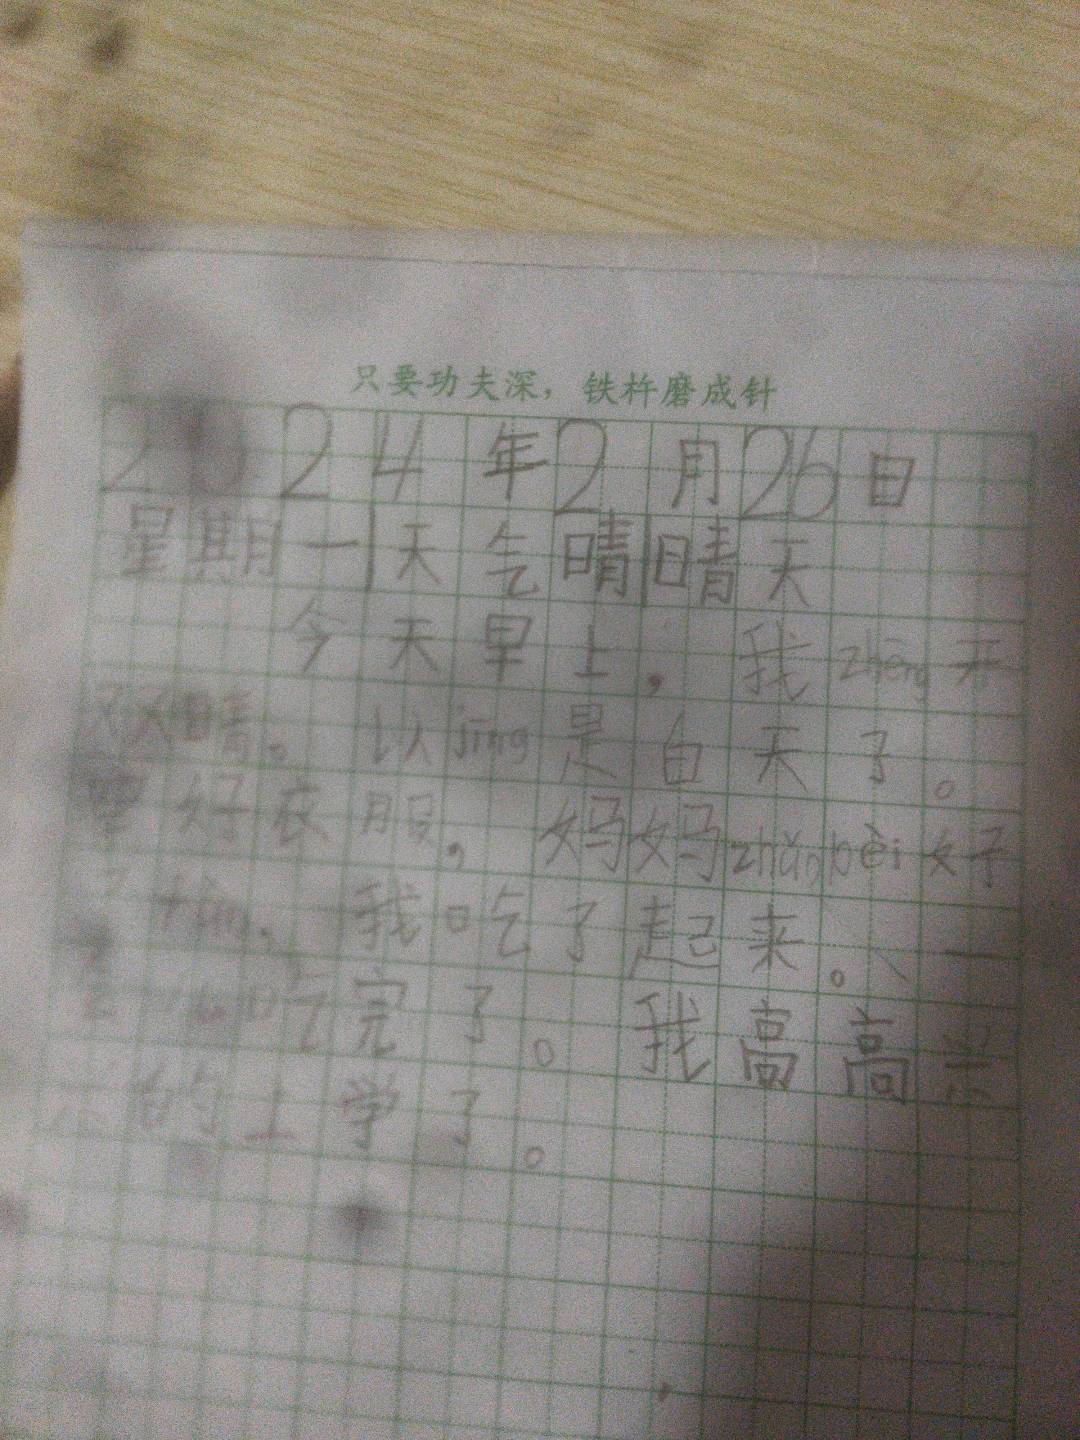 只要功夫深，铁杵磨成针
2024年2月26日
星期一天气晴晴天
今天早上，我zhēng开
双眼睛。以jīng是白天了。
穿好衣服，妈妈zhǔnbèi好
了 我吃了起来。一
吃完了。我高高兴
的上学了。